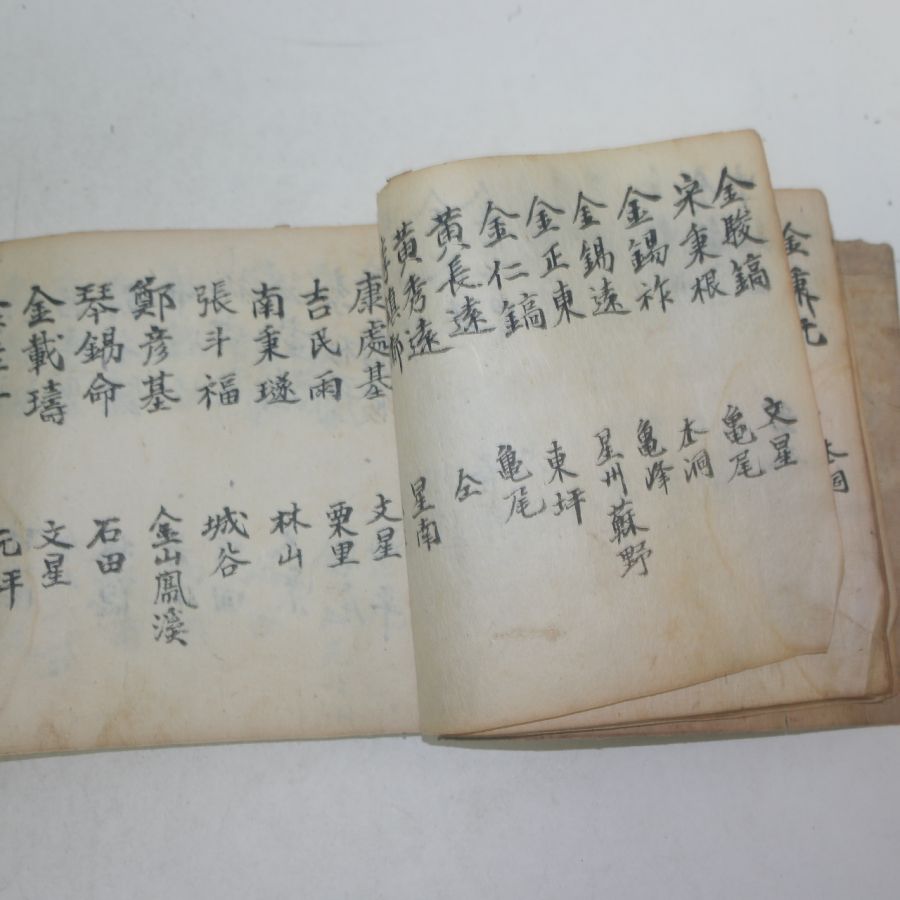 金
金駿鎬 文星
宋秉根 亀尾
金錫祚 本洞
金錫遠 亀峰
金正東 星州蘇野
金仁鎬 東坪
黃長遠 亀尾
黃秀遠 仝
星南
康處基 文星
吉民雨 栗里
南秉璲 林山
張斗福 城谷
鄭彦基 金山鳳溪
琴錫命 石田
金載璹 文星
元坪